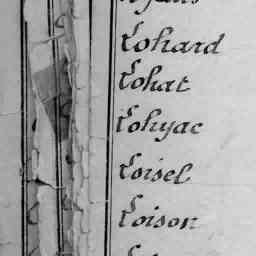 Lohard
Lohat
Lohyac
Loisel
Loison